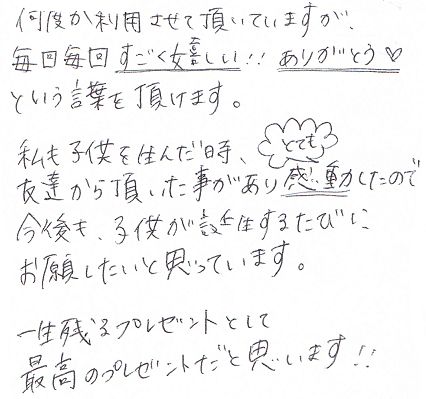 何度か利用させて頂いていますが、
毎回毎回すごく嬉しい!! ありがとう♡
という言葉を頂けます。
私も子供を住んだ時、とても
友達から頂いた事があり感動したので
今後も、子供が誕生するたびに
お願したいと思っています。
一生残るプレゼントとして
最高のプレゼントだと思います!!